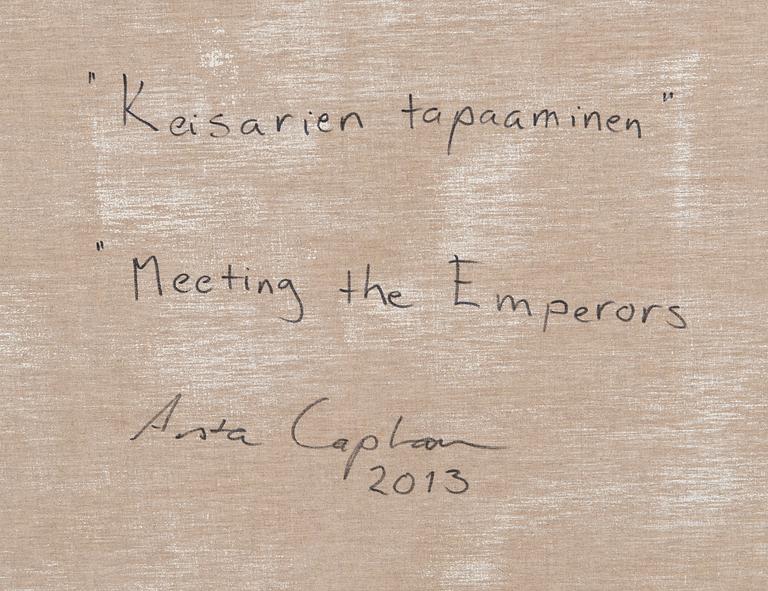 "Keisarien tapaaminen"
"Meeting the Emperors
Asta Caplan
2013